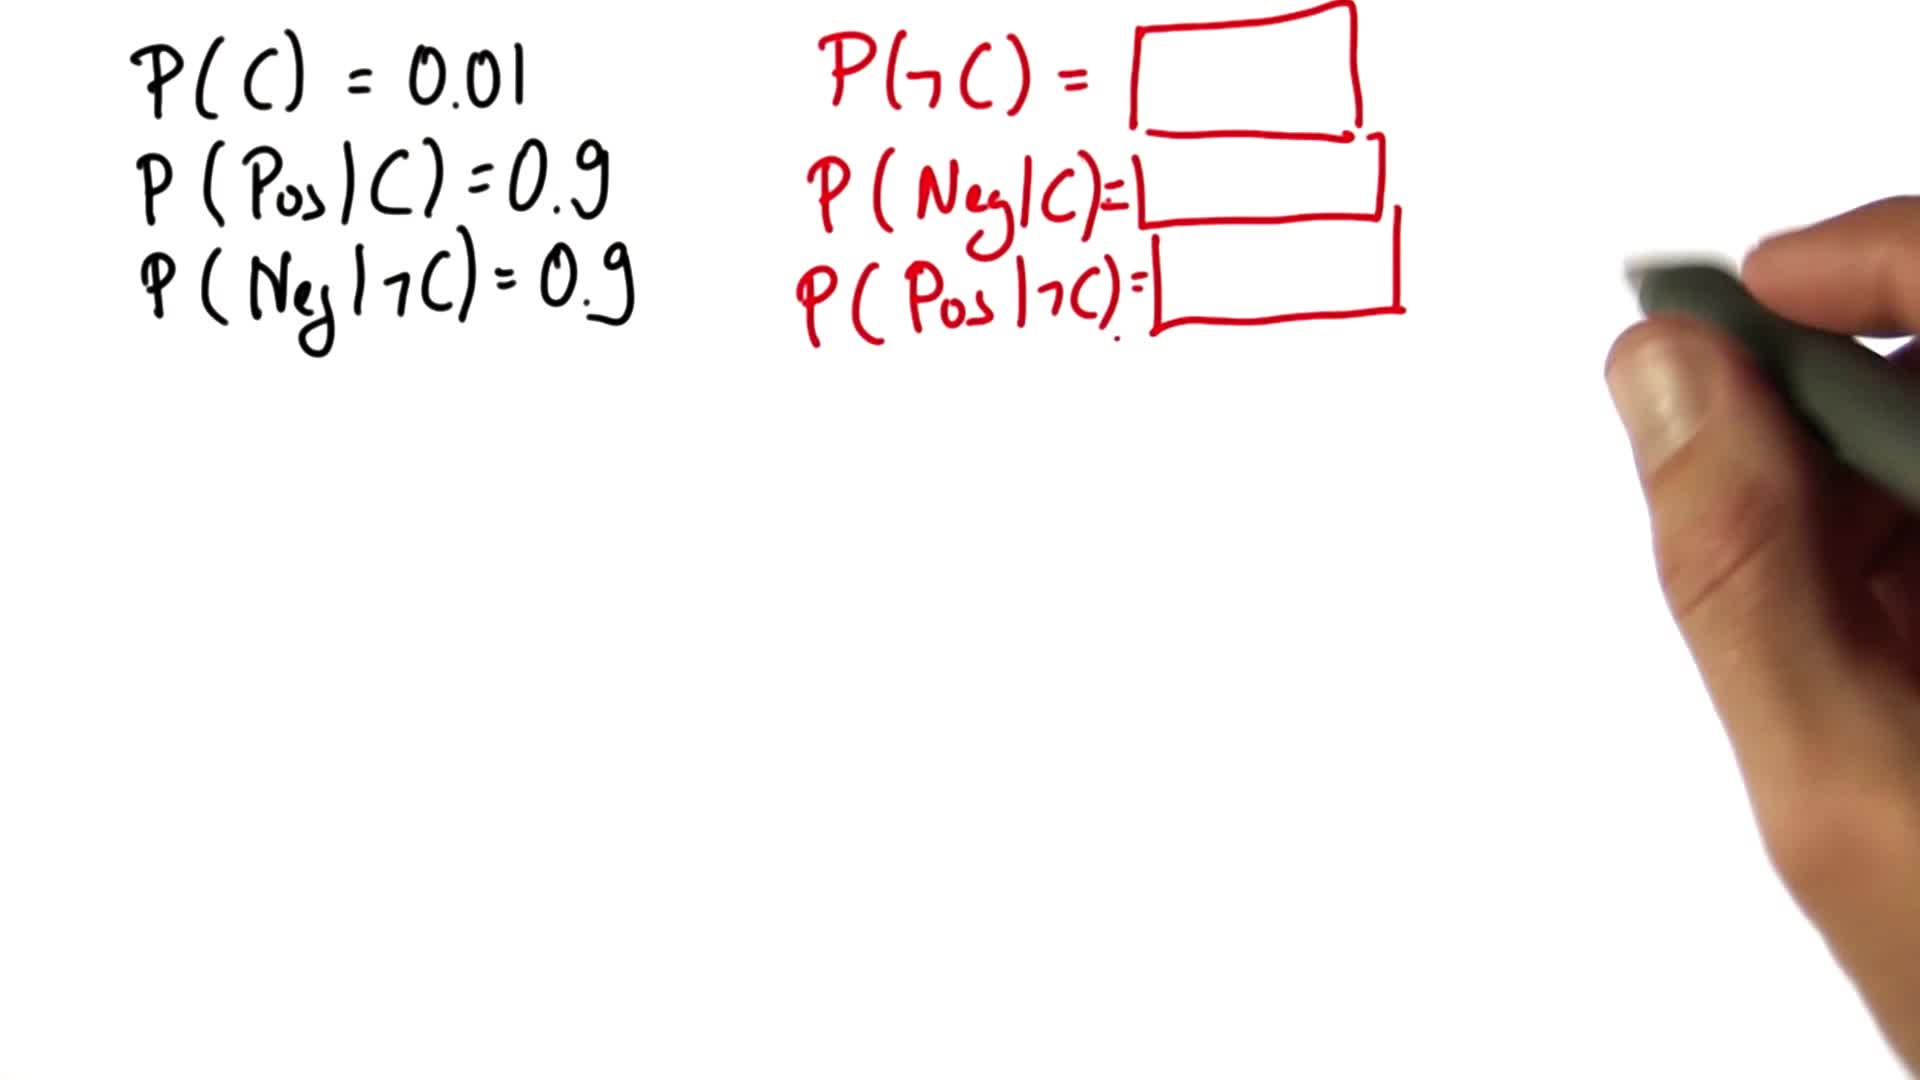 P(C) = 0.01
P(Pos|C) = 0.9
P(Neg|¬C) = 0.9
P(¬C) =
P(Neg|C) =
P(Pos|¬C) =